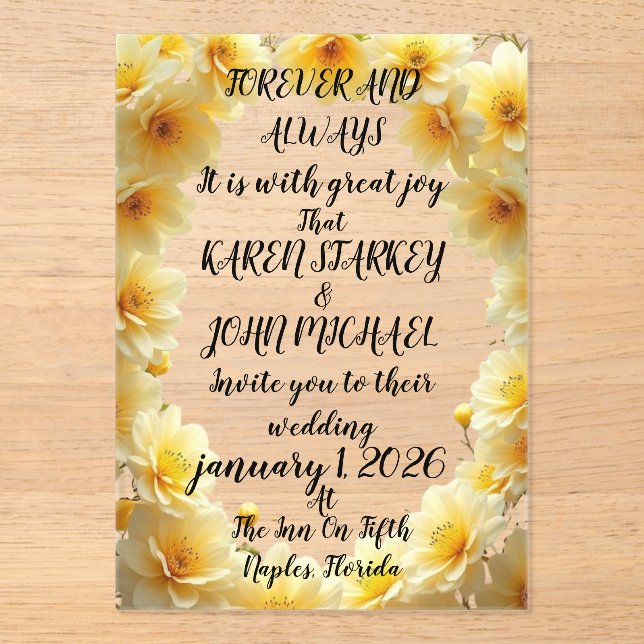 FOREVER AND
ALWAYS
It is with great joy
That
KAREN STARKEY
&
JOHN MICHAEL
Invite you to their
wedding
january 1, 2026
At
The Inn On Fifth
Naples, Florida